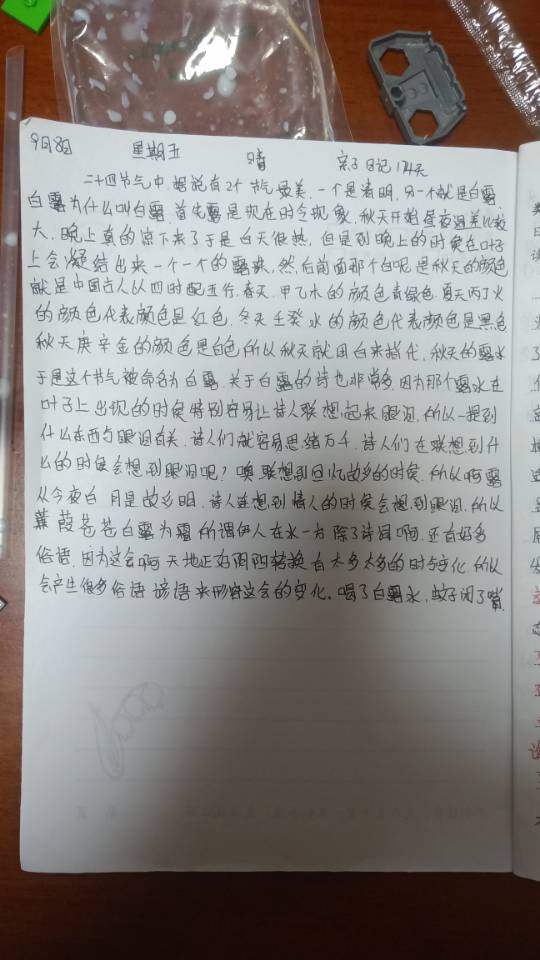 9月8日 星期五 晴 亲子日记174天
二十四节气中,据说有2个节气最美,一个是清明,另一个就是白露,
白露为什么叫白露,首先露是现在时令现象,秋天开始昼夜温差比较
大,晚上真的凉下来了于是白天很热,但是到晚上的时候在叶子
上会凝结出来一个一个的露珠,然后前面那个白呢是秋天的颜色
就是中国古人以四时配五行,春天,甲乙木的颜色青绿色,夏天丙丁火
的颜色代表颜色是红色,冬天壬癸水的颜色代表颜色是黑色
秋天庚辛金的颜色是白色所以秋天就用白来替代,秋天的露水
于是这个节气被命名为白露,关于白露的诗也非常多,因为那个露水在
叶子上出现的时候特别容易让诗人联想起来眼泪,所以一提到
什么东西与眼泪有关,诗人们就容易思绪万千,诗人们在联想到什
么的时候会想到眼泪呢?噢联想到回忆故乡的时候,所以啊露
从今夜白 月是故乡明,诗人连想到情人的时候会想到眼泪,所以
蒹葭苍苍白露为霜所谓伊人在水一方除了诗词啊,还有好多
俗语,因为这会啊天地正好阴阳转换有太多太多的时令变化,所以
会产生很多俗语谚语来形容这会的变化。喝了白露水,蚊子闭了嘴